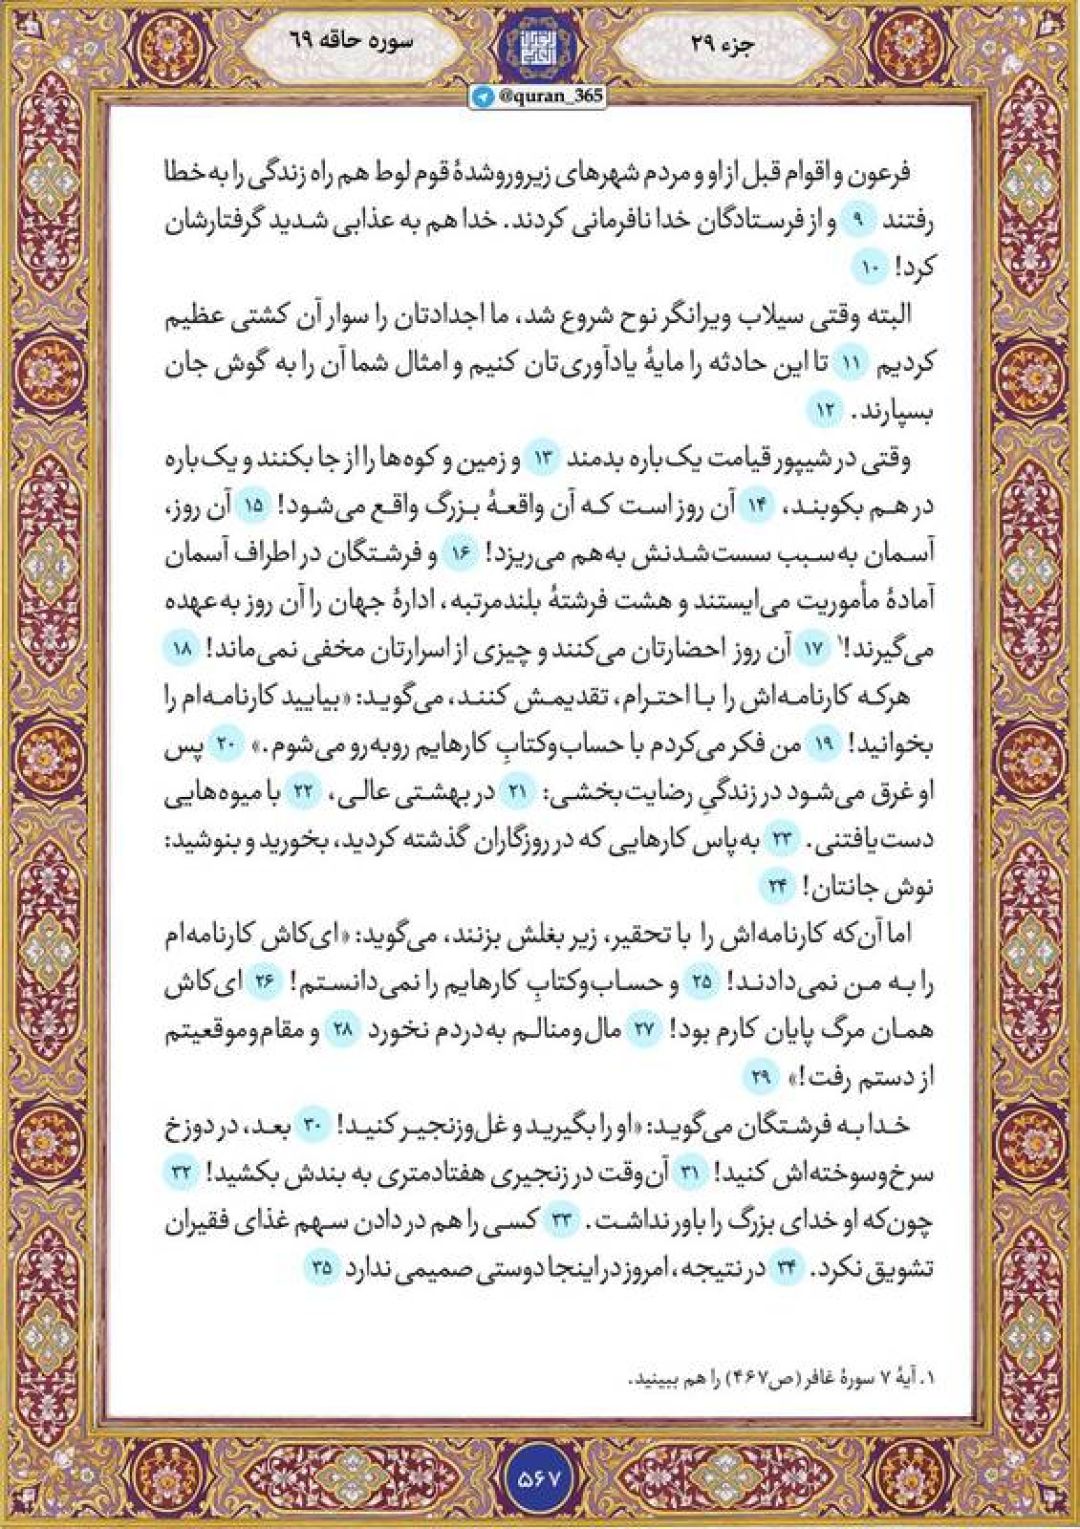 جزء ۲۹
سوره حاقه ۶۹
@quran_365
فرعون و اقوام قبل از او و مردم شهرهای زیروروشدهٔ قوم لوط هم راه زندگی را به خطا
رفتند ۹ و از فرستادگان خدا نافرمانی کردند. خدا هم به عذابی شدید گرفتارشان
کرد! ۱۰
البته وقتی سیلاب ویرانگر نوح شروع شد، ما اجدادتان را سوار آن کشتی عظیم
کردیم ۱۱ تا این حادثه را مایهٔ یادآوری‌تان کنیم و امثال شما آن را به گوش جان
بسپارند. ۱۲
وقتی در شیپور قیامت یک‌باره بدمند ۱۳ و زمین و کوه‌ها را از جا بکنند و یک‌باره
در هم بکوبند، ۱۴ آن روز است که آن واقعهٔ بزرگ واقع می‌شود! ۱۵ آن روز،
آسمان به‌سبب سست‌شدنش به‌هم می‌ریزد! ۱۶ و فرشتگان در اطراف آسمان
آمادهٔ مأموریت می‌ایستند و هشت فرشتهٔ بلندمرتبه، ادارهٔ جهان را آن روز به‌عهده
می‌گیرند!۱ ۱۷ آن روز احضارتان می‌کنند و چیزی از اسرارتان مخفی نمی‌ماند! ۱۸
هرکه کارنامه‌اش را با احترام، تقدیمش کنند، می‌گوید: «بیایید کارنامه‌ام را
بخوانید! ۱۹ من فکر می‌کردم با حساب‌وکتابِ کارهایم روبه‌رو می‌شوم.» ۲۰ پس
او غرق می‌شود در زندگیِ رضایت‌بخشی: ۲۱ در بهشتی عالی، ۲۲ با میوه‌هایی
دست‌یافتنی. ۲۳ به‌پاس کارهایی که در روزگاران گذشته کردید، بخورید و بنوشید:
نوش جانتان! ۲۴
اما آن‌که کارنامه‌اش را با تحقیر، زیر بغلش بزنند، می‌گوید: «ای‌کاش کارنامه‌ام
را به من نمی‌دادند! ۲۵ و حساب‌وکتابِ کارهایم را نمی‌دانستم! ۲۶ ای‌کاش
همان مرگ پایان کارم بود! ۲۷ مال‌ومنالم به‌دردم نخورد ۲۸ و مقام‌وموقعیتم
از دستم رفت!» ۲۹
خدا به فرشتگان می‌گوید: «او را بگیرید و غل‌وزنجیر کنید! ۳۰ بعد، در دوزخ
سرخ‌وسوخته‌اش کنید! ۳۱ آن‌وقت در زنجیری هفتادمتری به بندش بکشید! ۳۲
چون‌که او خدای بزرگ را باور نداشت. ۳۳ کسی را هم در دادن سهم غذای فقیران
تشویق نکرد. ۳۴ در نتیجه، امروز در اینجا دوستی صمیمی ندارد ۳۵
۱. آیهٔ ۷ سورهٔ غافر (ص۴۶۷) را هم ببینید.
۵۶۷